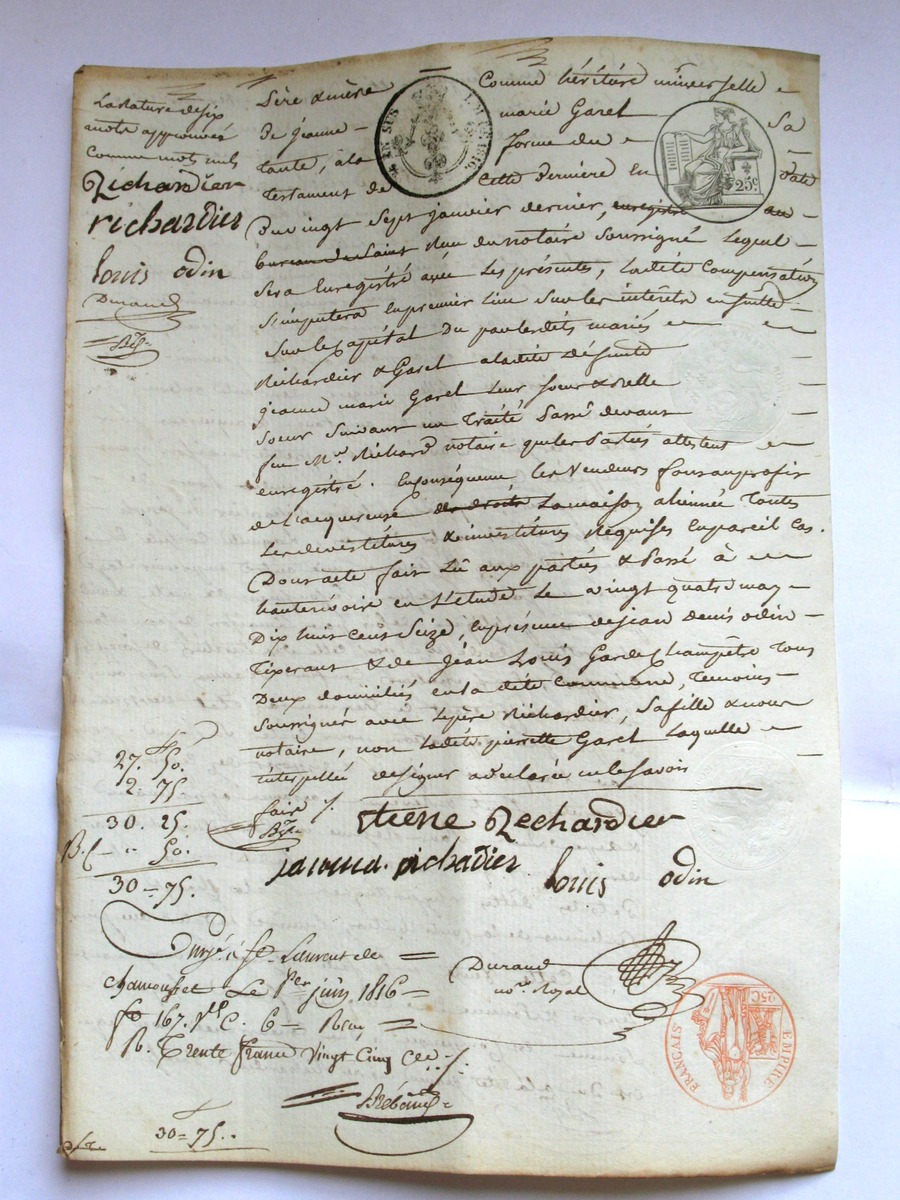 La rature de six
mots approuvée
comme mots nuls
Richardier
richardier
louis odin
Durand
père & mère comme héritière universelle
De jeanne marie Garel Sa
tante, à la forme du
Testament de Cette Dernière En Date
Du vingt Sept janvier dernier, enregistré au
bureau de Saint Reçu du notaire soussigné Lequel
Sera Enregistré avec Les présentes, Ladite Compensation
S'imputera En premier Lieu Sur les intérêts ensuite
Sur le Capital Du par lesdits mariés
Richardier & Garel a ladite Défunte
jeanne marie Garel Leur Soeur & Belle
Soeur Suivant un Traité Passé devant
feu Me Richard notaire que les Parties attestent
enregistré. En Conséquence, les Vendeurs font au profit
de L'acquereuse de droits La maison alienée Toutes
Les devestitures & investitures Requises En pareil Cas.
Dont acte fait Lû aux parties & Passé à
hauterivoire en L'etude Le vingt quatre may
Dix huit Cent Seize, En présence de jean Denis odin
Tixerant & de jean Louis Garde Champêtre Tous
Deux domiciliés en la dite Commune, Temoins
Soussignés avec Le père Richardier, Sa fille & nous
notaire, non Ladite pierrette Garel Laquelle
interpellée de signer a declaré ne le Savoir
faire
27. 50.
2. 75.
30. 25.
50.
30 = 75.
Etiene Rechardier
richadier
louis odin
Durand
nore Royal
Enrgé à St Laurent de
chamousset Le 1er juin 1816
fo 167. Vo C. 6 Reçu
Trente francs Vingt Cinq
30 = 75.
EN SUS
L. 1816.
25c
EMPIRE FRANÇAIS
25C